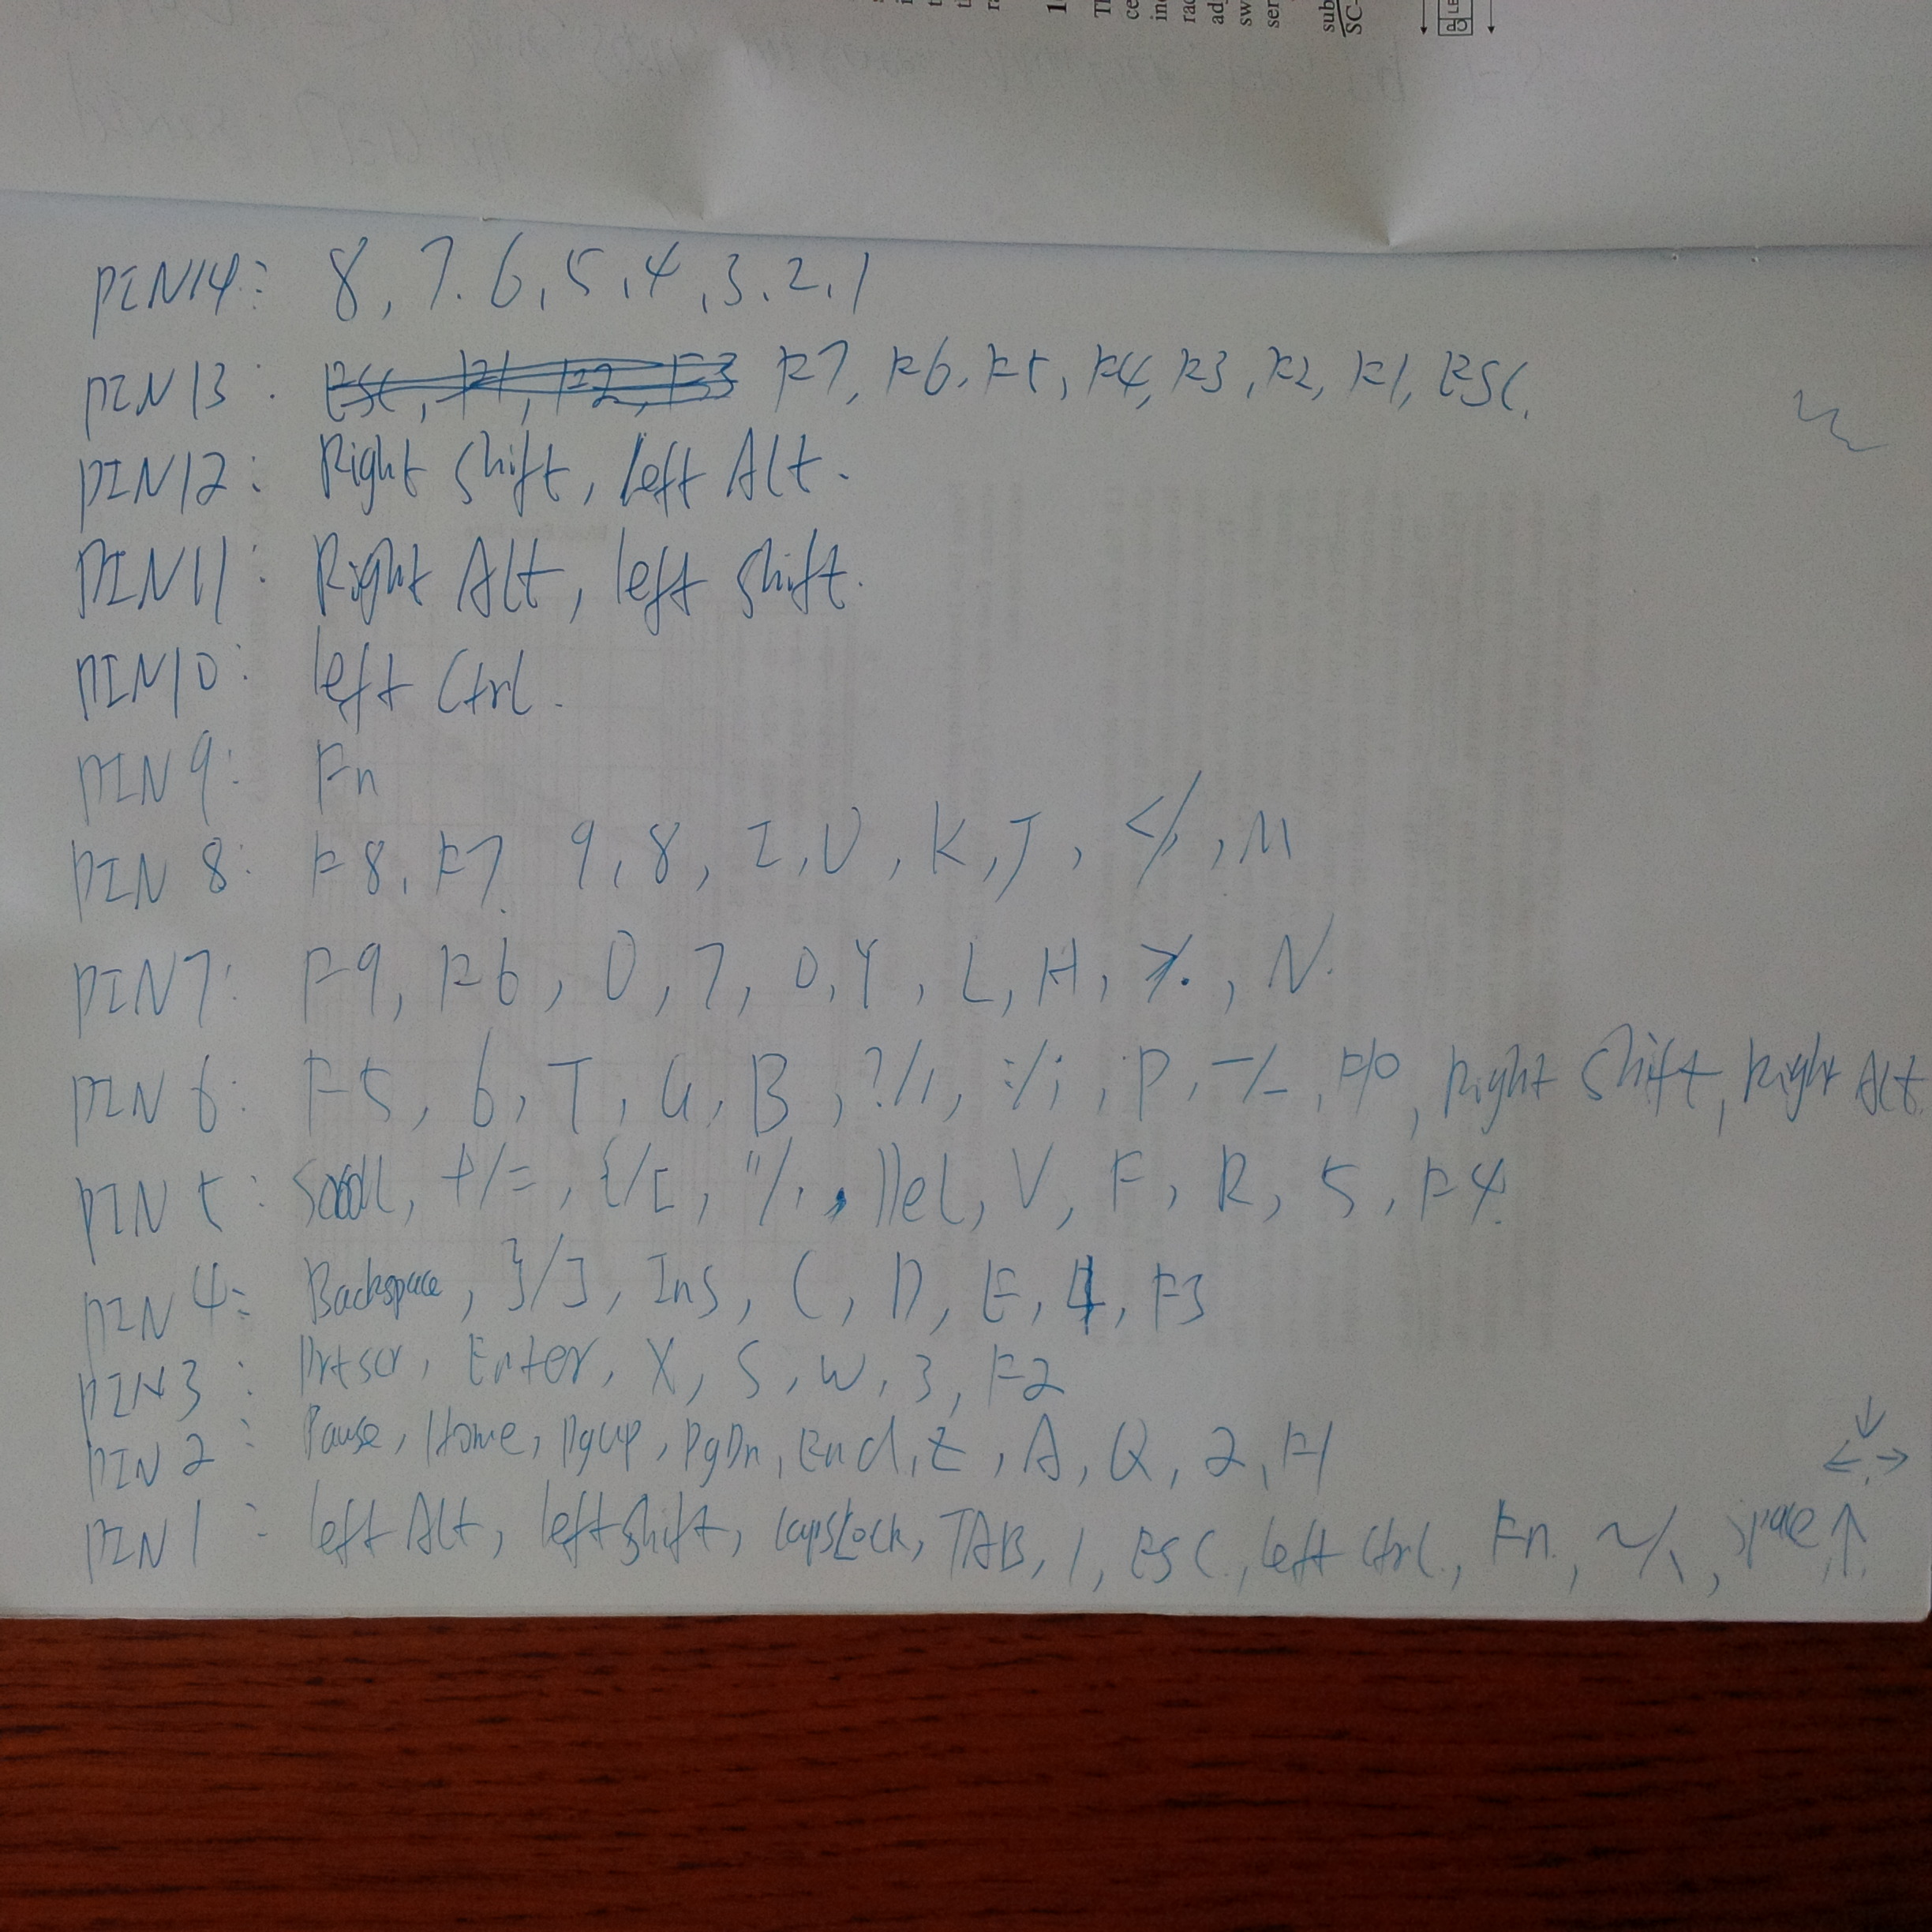 PIN14: 8, 7. 6, 5, 4, 3, 2, 1
PIN13: ESC, F1, F2, F3 F7, F6, F5, F4, F3, F2, F1, ESC.
PIN12: Right Shift, left Alt.
PIN11: Right Alt, left Shift.
PIN10: left Ctrl.
PIN 9: Fn
PIN 8: F8, F7, 9, 8, I, U, K, J, </, , M
PIN7: F9, F6, 0, 7, O, Y, L, H, >/. , N.
PIN 6: F5, 6, T, G, B, ?//, :/;, P, -/-, F10, Right Shift, Right Alt
PIN 5: Scroll, +/=, {/[, "/', Del, V, F, R, 5, F4.
PIN 4: Backspace, }/], Ins, C, D, E, 4, F3
PIN3: Prtscr, Enter, X, S, W, 3, F2
PIN 2: Pause, Home, PgUp, PgDn, End, Z, A, Q, 2, F1
↓
← →
PIN 1: left Alt, left shift, CapsLock, TAB, 1, ESC, left Ctrl, Fn, ~/\, space, ↑